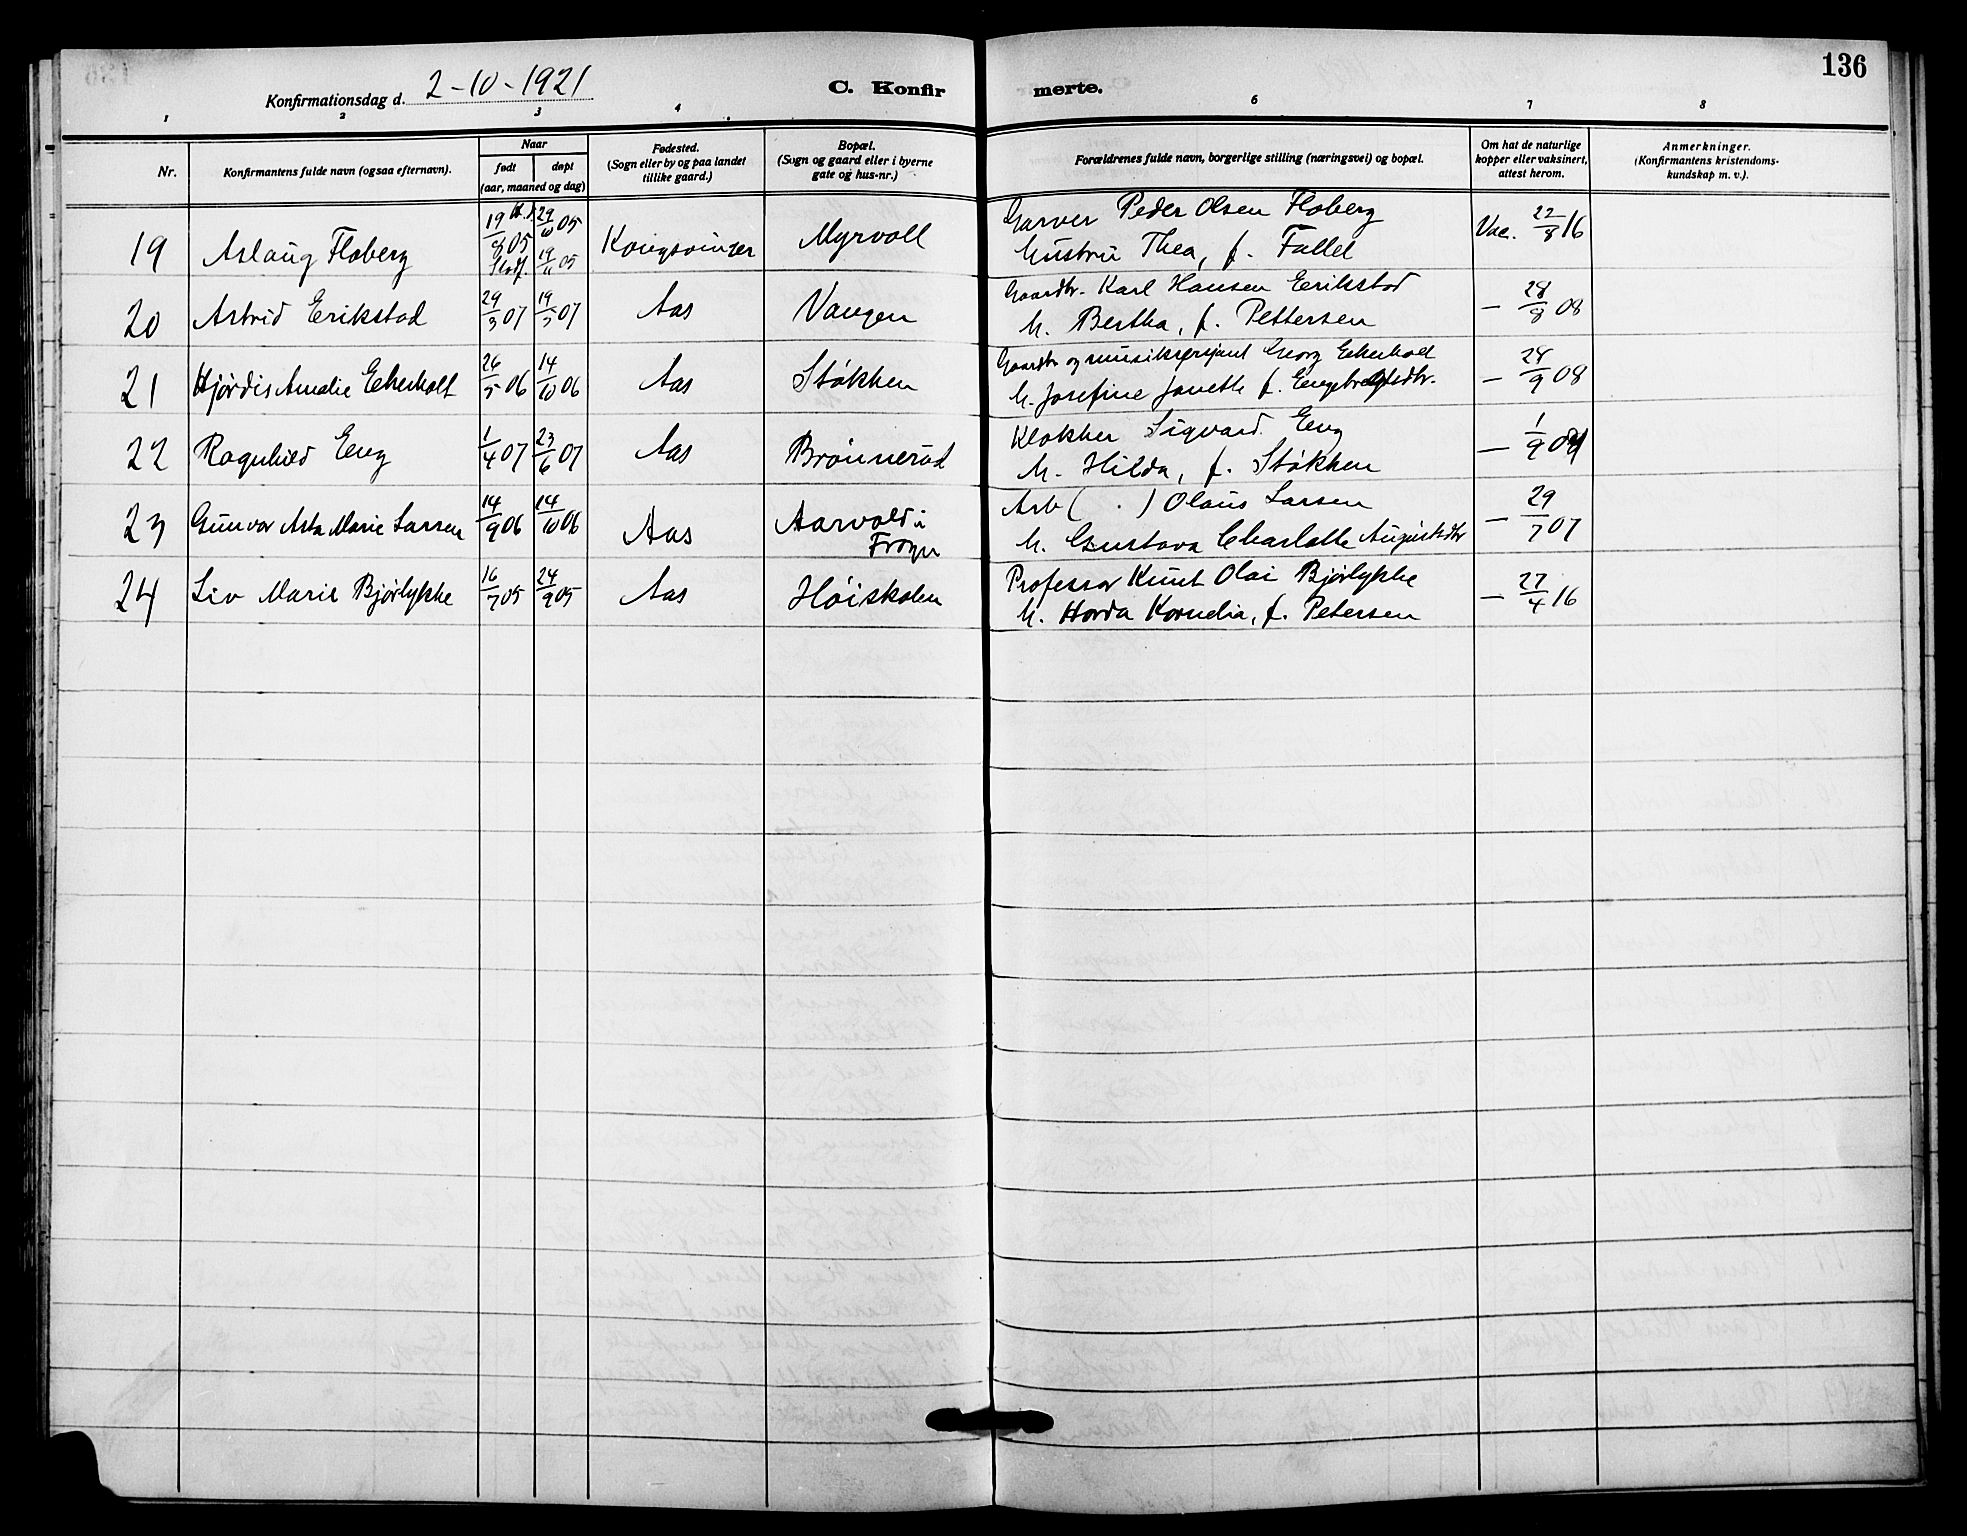 136
Konfirmationsdag d. 2-10-1921
C. Konfirmerte.
1 2 3 4 6 7 8
Nr.
Konfirmantens fulde navn (ogsaa efternavn).
Naar
født
døpt
(aar, maaned og dag)
Fødested.
(Sogn eller by og paa landet
tillike gaard.)
Bopæl.
(Sogn og gaard eller i byerne
gate og hus-nr.)
Forældrenes fulde navn, borgerlige stilling (næringsvei) og bopæl.
Om har de naturlige
kopper eller vaksinert,
attest herom.
Anmerkninger.
(Konfirmantens kristendoms-
kundskap m. v.).
19 Aslaug Floberg 19/8 05 29/10 05 19/11 05 Kongsvinger Myrvoll Garver Peder Olsen Floberg Vac. 22/8 16
Hustru Thea, f. Fallet
20 Astrid Erikstad 29/3 07 19/5 07 Aas Vangen Gaardbr. Karl Hansen Erikstad — 28/8 08
H. Bertha, f. Pettersen
21 Hjørdis Amalie Ekerholt 26/5 06 14/10 06 Aas Støkken Gaardbr og musiksersjant Georg Ekerholt — 28/9 08
H. Josefine Janette f. Engebretsdtr.
22 Ragnhild Eng 1/4 07 23/6 07 Aas Brønnerud Klokker Sigvard Eng — 1/9
H. Hilda, f. Støkken
23 Gunvor Asta Marie Larsen 14/9 06 14/10 06 Aas Aarvold i Frogn Arb ( . ) Olaus Larsen — 29/7 07
H. Gustava Charlotte Augustsdtr
24 Liv Marie Bjørlykke 16/7 05 24/9 05 Aas Høiskolen Professor Knut Olai Bjørlykke — 27/4 16
H. Horda Kornelia, f. Petersen